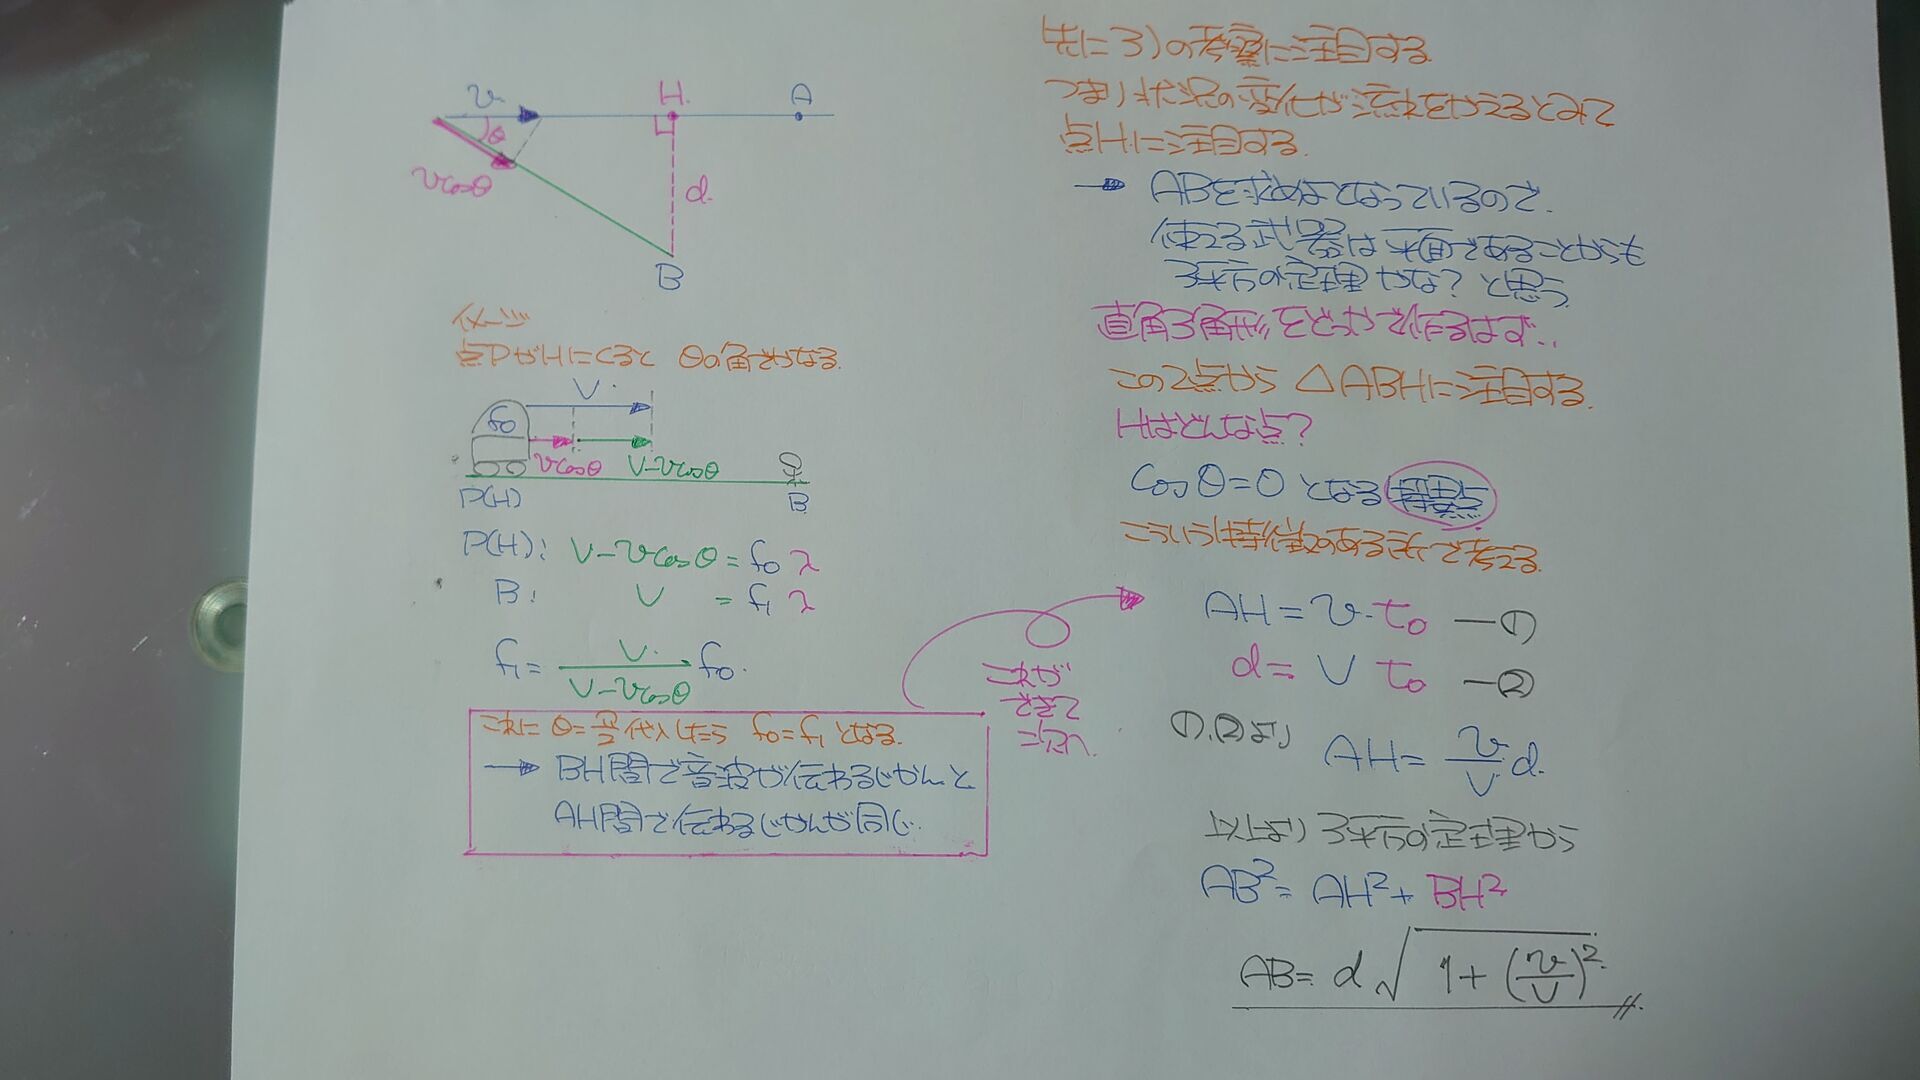 v
H
A
θ
vcosθ
d
B
イメージ
点PがHにくると θの角でかなる
V
f₀
vcosθ
V-vcosθ
P(H)
B
P(H): V-vcosθ=f₀λ
B: V = f₁λ
f₁= V/(V-vcosθ) f₀
これに θ=π/2 代入したら f₀=f₁となる.
→ BH間で音波が伝わるじかんと
AH間で伝わるじかんが同じ.
これが
できて
こっちへ
先に3)の考察に注目する
つまり状況の変化が流れをかえるとみて
点Hに注目する.
→ ABを求めよとなっているので.
使える武器は平面であることからも
3平方の定理かな?と思う
直角3角形をどっかで作るはず..
この2点から △ABHに注目する.
Hはどんな点?
cosθ=0となる特異点
こういう特徴のある所で考える.
AH=v・t₀ ―①
d=V t₀ ―②
①,②より AH= v/V d.
以上より 3平方の定理から
AB²= AH²+BH²
AB= d√1+(v/V)²